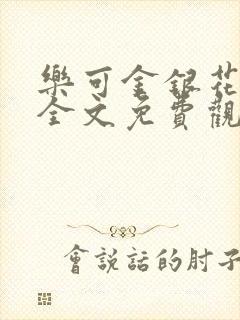 樂可金銀花
全文免費觀
會說話的肘子